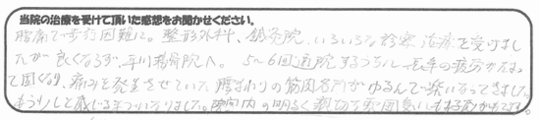 当院の治療を受けて頂いた感想をお聞かせください。
腰痛で歩行困難に。整形外科、鍼灸院、いろいろな診察治療を受けまし
たが良くならず、平川接骨院へ。5~6回通院するうちに、長年の疲労がたまっ
て固くなり、痛みを発生させていた腰まわりの筋肉各所がゆるんで楽になってきました。
もう少しと感じるまでになりました。院内の明るく親切な雰囲気にも